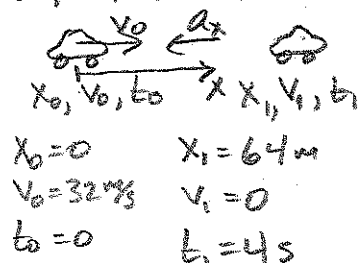 v₀ aₓ
x₀, v₀, t₀ x x₁, v₁, t₁
x₀=0 x₁=64m
v₀=32 m/s v₁=0
t₀=0 t₁=4s